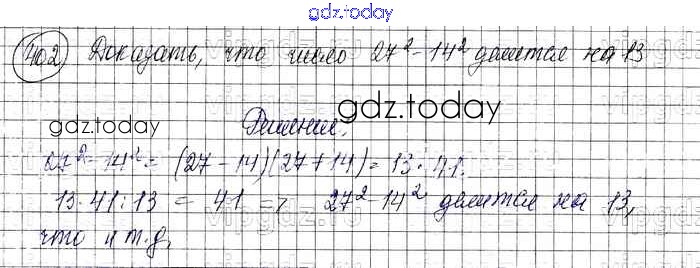 gdz.today
402 Доказать, что число 27² - 14² делится на 13
gdz.today
gdz.today Решение.
27² - 14² = (27 - 14)(27 + 14) = 13 · 41.
13 · 41 : 13 = 41 => 27² - 14² делится на 13,
что и т.д.